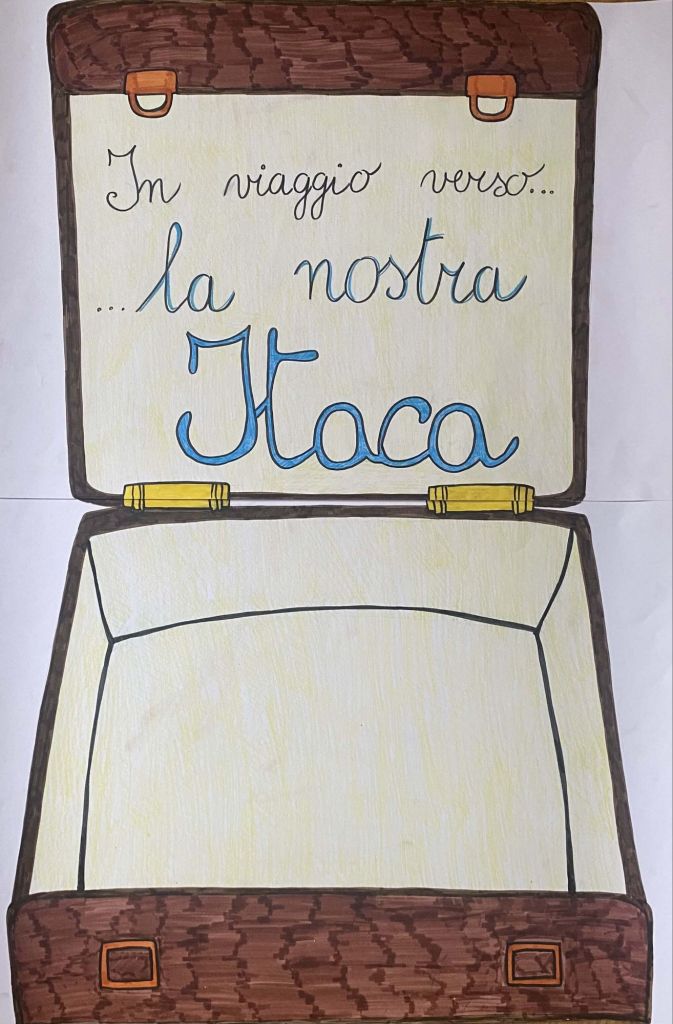 In viaggio verso...
...la nostra
Itaca